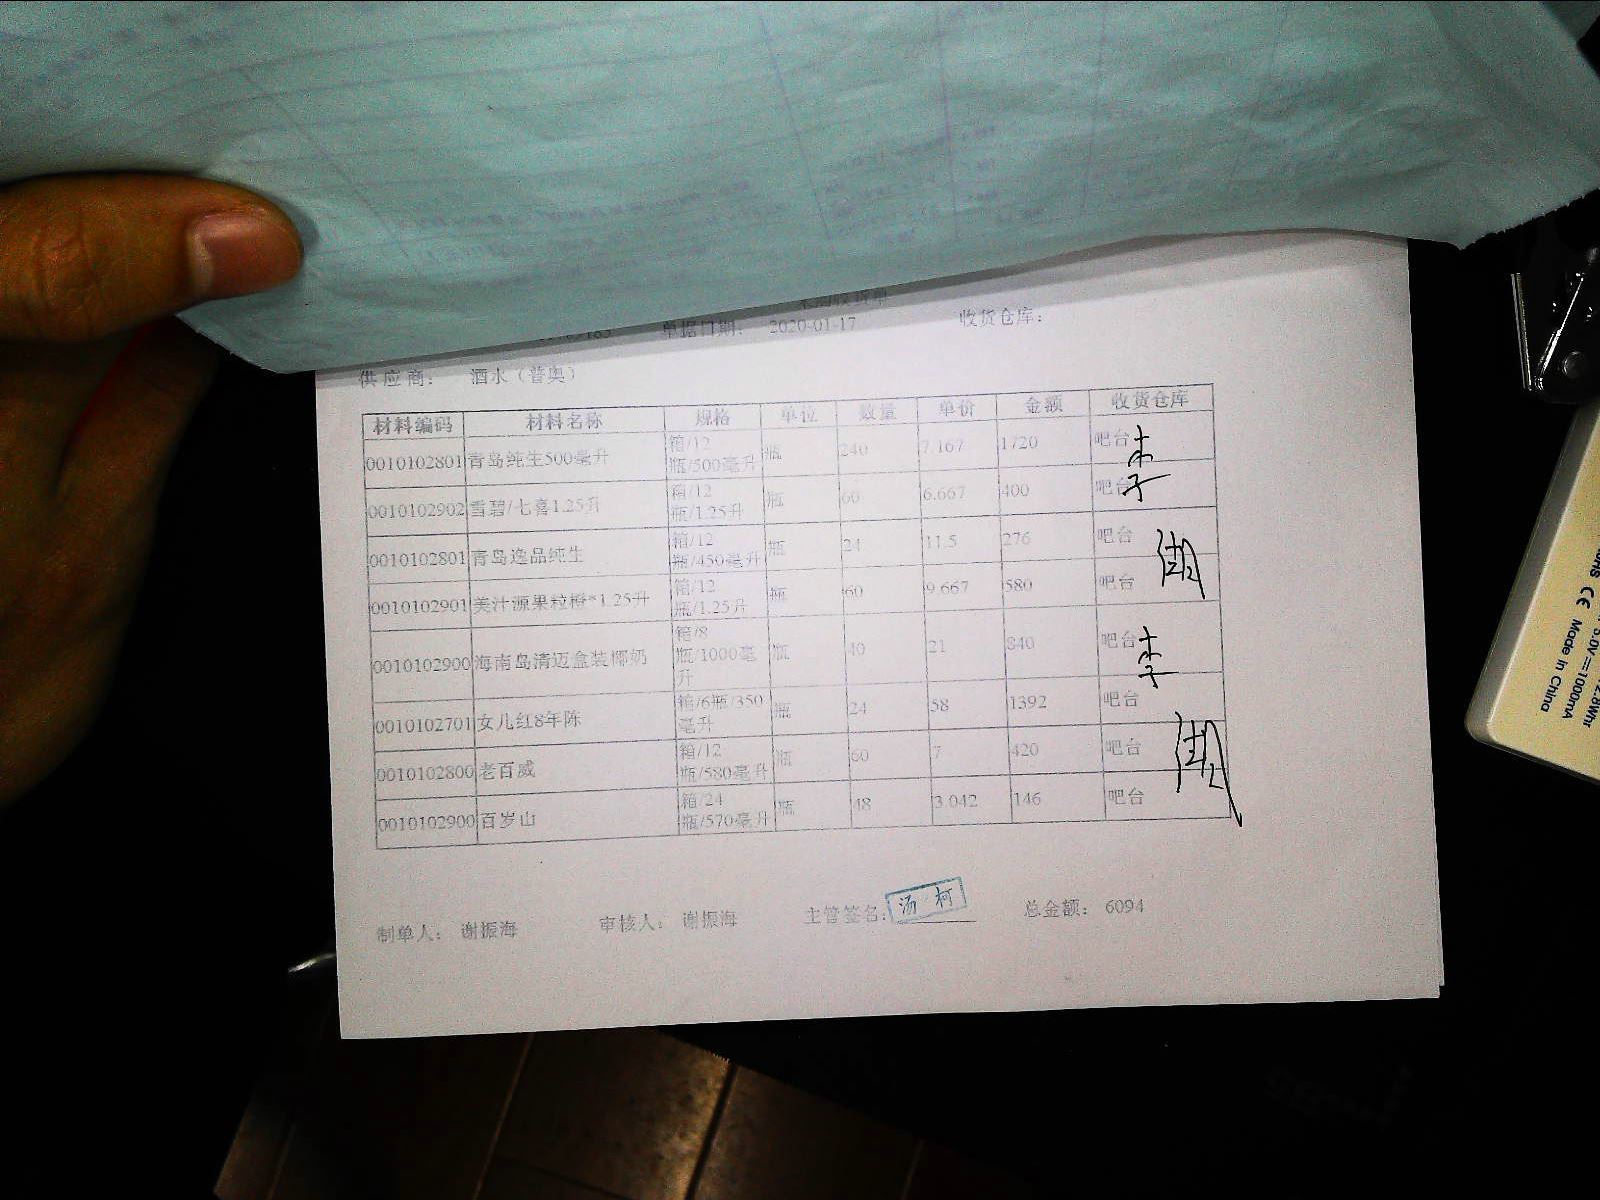 单据日期： 2020-01-17 收货仓库：
供应商： 酒水（普奥）
材料编码 材料名称 规格 单位 数量 单价 金额 收货仓库
0010102801 青岛纯生500毫升 箱/12瓶/500毫升 瓶 240 7.167 1720 吧台
0010102902 雪碧/七喜1.25升 箱/12瓶/1.25升 瓶 60 6.667 400 吧台
0010102801 青岛逸品纯生 箱/12瓶/450毫升 瓶 24 11.5 276 吧台
0010102901 美汁源果粒橙*1.25升 箱/12瓶/1.25升 瓶 60 9.667 580 吧台
0010102900 海南岛清迈盒装椰奶 箱/8瓶/1000毫升 瓶 40 21 840 吧台
0010102701 女儿红8年陈 箱/6瓶/350毫升 瓶 24 58 1392 吧台
0010102800 老百威 箱/12瓶/580毫升 瓶 60 7 420 吧台
0010102900 百岁山 箱/24瓶/570毫升 瓶 48 3.042 146 吧台
制单人： 谢振海 审核人： 谢振海 主管签名： 汤柯 总金额： 6094
5.0V⎓1000mA
CE Made in China